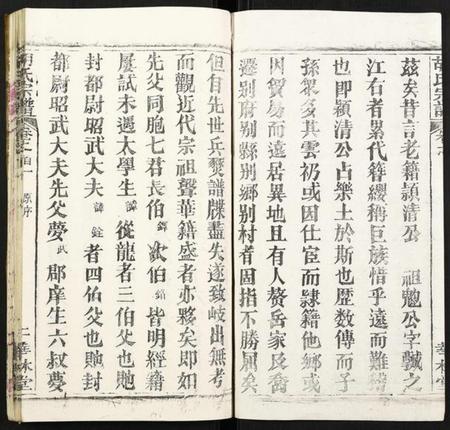 胡氏宗譜
茲矣昔言老籍頴清公 祖勉公字誠之
江右者累代簪纓稱巨族惜乎遠而難稽
也即頴清公占樂土於斯也歷數傳而子
孫眾多其雲礽或因仕宦而隸籍他鄉或
因貿易而遠居異地且有人贅岳家及喬
遷別府別縣別鄉別村者固指不勝屈矣
華林堂
但自先世兵燹譜牒盡失遂致岐出無考
而觀近代宗祖聲華籍盛者亦夥矣即如
先父同胞七君長伯 次伯 皆明經籍
屢試未遇太學生 從龍者三伯父也貤
封都尉昭武大夫 銓者四伯父也貤封
都尉昭武大夫先父夢武 郡庠生六叔夢
胡氏宗譜 卷之 原序 一 華林堂